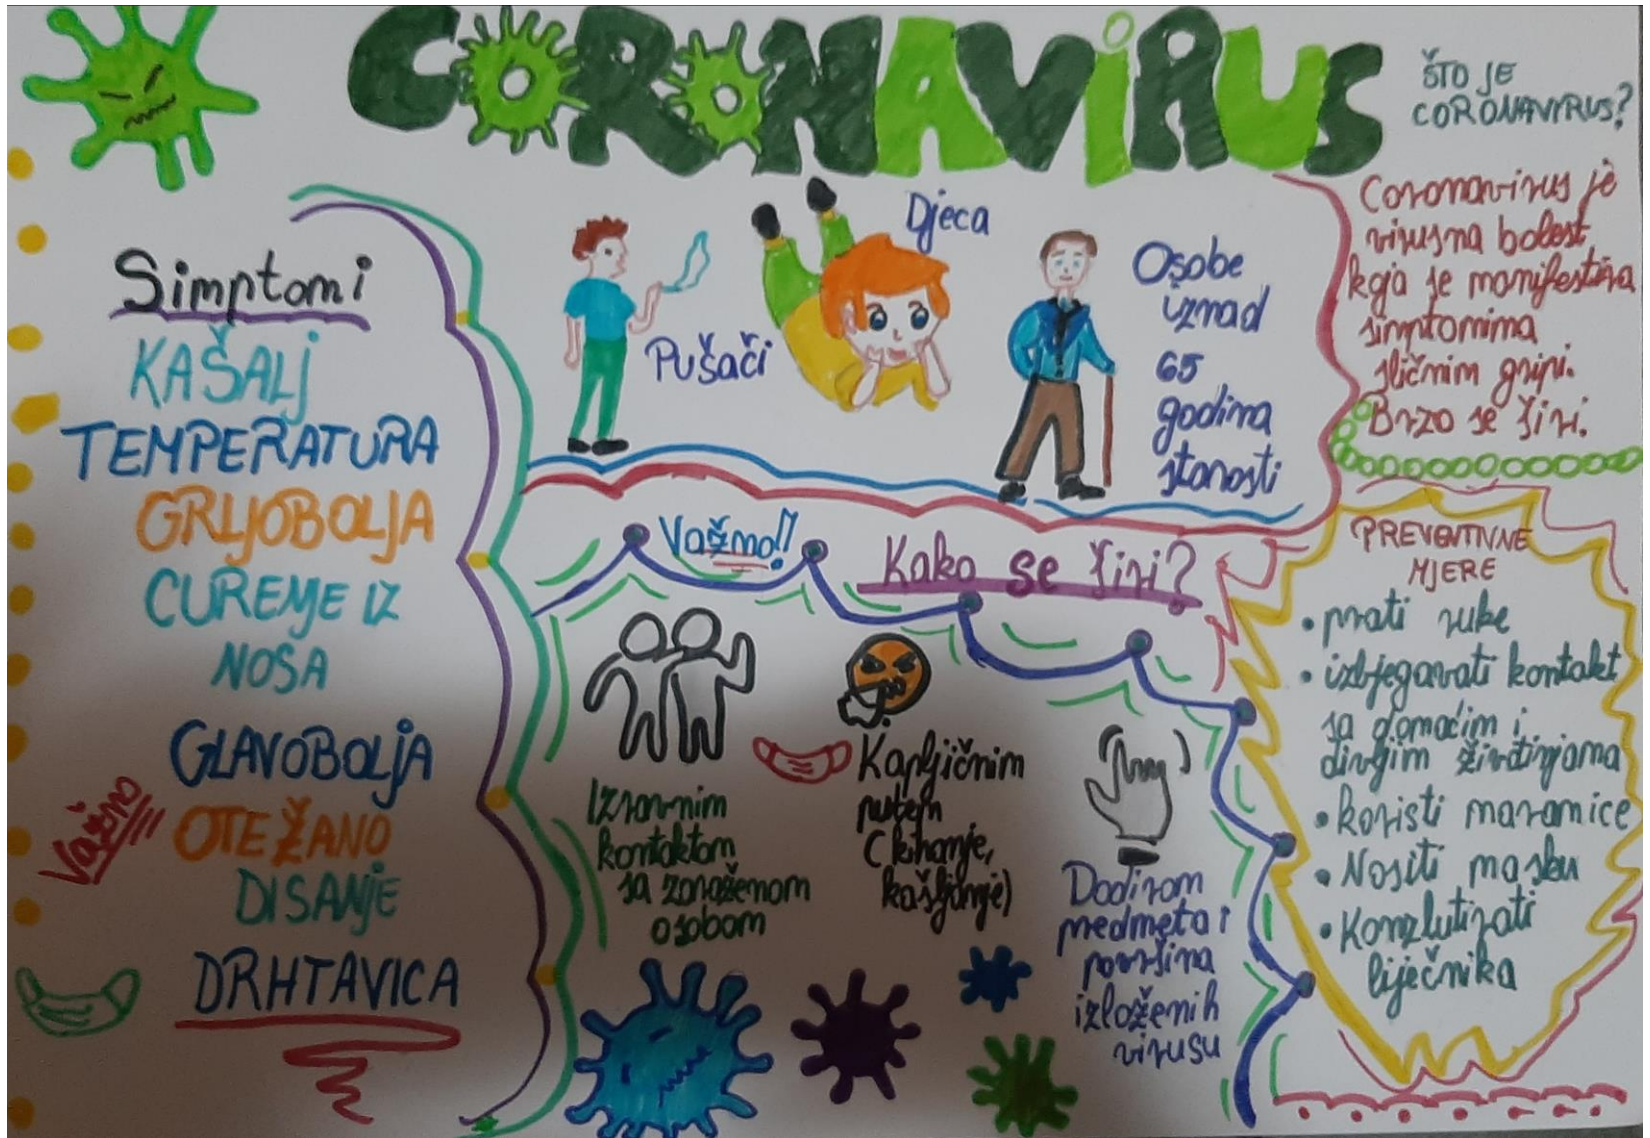 CORONAVIRUS
ŠTO JE
CORONAVIRUS?
Coronavirus je
virusna bolest
koja se manifestira
simptomima
sličnim gripi.
Brzo se širi.
Simptomi
KAŠALJ
TEMPERATURA
GRLJOBOLJA
CURENJE IZ
NOSA
GLAVOBOLJA
Važno
OTEŽANO
DISANJE
DRHTAVICA
Pušači
Djeca
Osobe
iznad
65
godina
starosti
Važno!!
Kako se širi?
Izravnim
kontaktom
sa zaraženom
osobom
Kapljičnim
putem
(kihanje,
kašljanje)
Dodirom
predmeta i
površina
izloženih
virusu
PREVENTIVNE
MJERE
• prati ruke
• izbjegavati kontakt
sa domaćim i
divljim životinjama
• koristi maramice
• Nositi masku
• Konzlutirati
liječnika